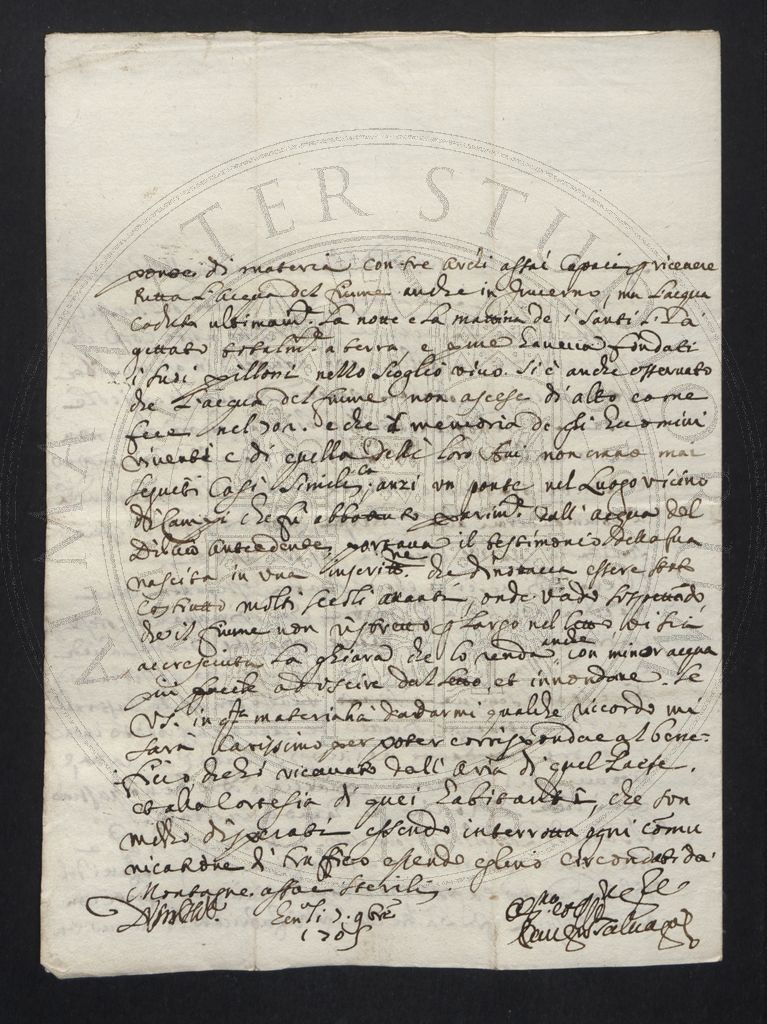 ponte di materia con tre archi assai capaci p ricevere
tutta l'acqua del fiume anche in Inverno, ma l'acqua
caduta ultimam.te la notte e la mattina de i Santi l'ha
gettato totalm.te a terra, e pure haveva fondati
i suoi pilloni nello scoglio vivo. Si è anche osservato
che l'acqua del fiume non ascese di alto come
fece nel 701. e che à memoria de gli huomini
viventi e di quella delli loro Avi non erano mai
seguiti casi simili, anzi un ponte nel luogo vicino
di Campi che fù abbattuto parim.te dall'acqua del
Diluvio antecedente, portava il testimonio della sua
nascita in una inscritt.ne che dinotava essere stato
costrutto molti secoli avanti, onde vado sospettando
che il fiume non ristretto p largo nel letto vi sia
accresciuta la ghiara che lo renda anche con minor acqua
più facile ad uscire dal letto, et innondare. Se
VS. in q.ta materia hà da darmi qualche riccordo mi
sarà carissimo per poter corrispondere al bene-
ficio che hò ricavato dall'aria di quel Paese,
et alla cortesia di quei habitanti, che son
mezzo disperati essendo interrotta ogni comu
nicatione di traffico essendo eglino circondati da
Montagne assai sterili.
7. 9bre
1705